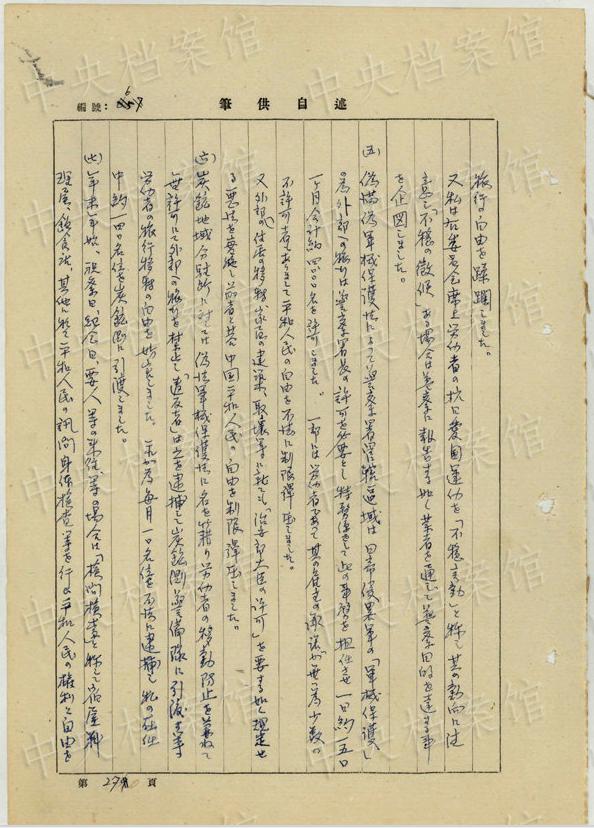 中央档案馆
編號：
筆供自述
旅行の自由を蹂躙しました。
又私は右委員会席上労働者の抗日愛国運動を「不穏言動」と称して其の動向に注
意し「不穏の徴候」ある場合は警察に報告する如く業者を通じて警察目的を達する事
を企図しました。
(五) 偽満偽軍機保護法によって警察署管轄区域は日帝侵略軍の「軍機保護」
の為外部への旅行は警察署長の許可を必要とし特務係をして此の事務を担任させ一日約一五〇
一ヶ月合計約四〇〇〇名を許可しました。一部には労働者であって其の雇主の承認が無い為少数の
不許可者もありまして平和人民の自由を不法に制限弾圧しました。
又外部への住居の移転家屋の建築、取壊等に就ても「治安部大臣の許可」を要する如く規定せ
る悪法を実施し前者と共に中国平和人民の自由を制限弾圧しました。
(六) 炭鉱地域分駐所に対しては偽法軍機保護法に名を藉り労働者の移動防止を兼ねて
無許可にて外部への旅行を禁止し「違反者」は之を逮捕して炭鉱側警備隊に引渡す等
労働者の旅行移転の自由を妨害しました。之が為毎月一〇名位を不法に逮捕し私の在任
中約一四〇名位を炭鉱側に引渡しました。
(七) 年末年始、祝祭日、紀念日、要人等の来往等の場合は「検問検索」と称して宿屋、料
理屋、飲食店、其他に於て平和人民の訊問身体検査等を行ひ平和人民の権利と自由を
第 頁